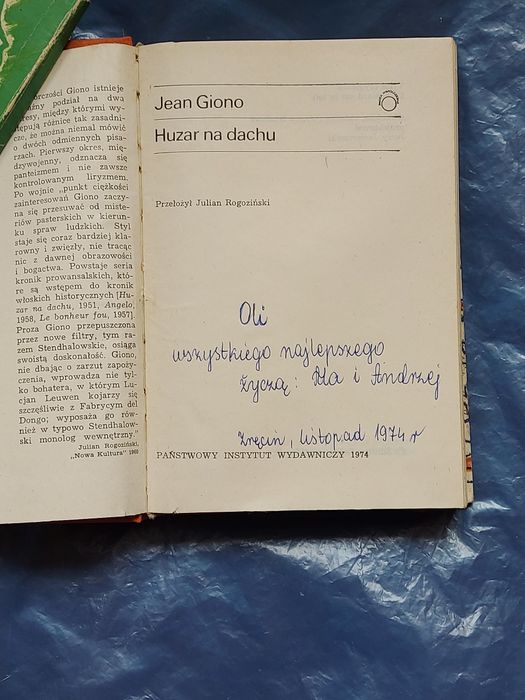 rczości Giono istnieje
źny podział na dwa
esy, między którymi wy-
tępują różnice tak zasadni-
cze, że można niemal mówić
o dwóch odmiennych pisa-
rzach. Pierwszy okres, mię-
dzywojenny, odznacza się
panteizmem i nie zawsze
kontrolowanym liryzmem.
Po wojnie „punkt ciężkości
zainteresowań Giono zaczy-
na się przesuwać od miste-
riów pasterskich w kierun-
ku spraw ludzkich. Styl
staje się coraz bardziej kla-
rowny i zwięzły, nie tracąc
nic z dawnej obrazowości
i bogactwa. Powstaje seria
kronik prowansalskich, któ-
re są wstępem do kronik
włoskich historycznych [Hu-
zar na dachu, 1951, Angelo,
1958, Le bonheur fou, 1957].
Proza Giono przepuszczona
przez nowe filtry, tym ra-
zem Stendhalowskie, osiąga
swoistą doskonałość. Giono,
nie dbając o zarzut zapoży-
czenia, wprowadza nie tyl-
ko bohatera, w którym Lu-
cjan Leuwen kojarzy się
szczęśliwie z Fabrycym del
Dongo; wyposaża go rów-
nież w typowo Stendhalow-
ski monolog wewnętrzny."
Julian Rogoziński,
„Nowa Kultura" 1960
Jean Giono
Huzar na dachu
Przełożył Julian Rogoziński
Oli
wszystkiego najlepszego
życzą: Ila i Andrzej
Zręcin, listopad 1974 r
PAŃSTWOWY INSTYTUT WYDAWNICZY 1974